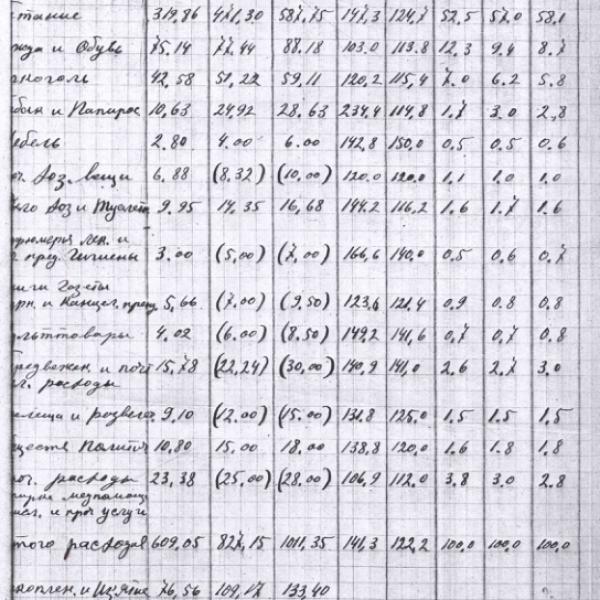 тание 319,86 471,30 587,75 147,3 124,7 52,5 57,0 58,1
жда и Обувь 75.14 77.44 88.18 103.0 113.8 12,3 9.4 8.7
коголь 42,58 51,22 59,11 120,2 115,4 7.0 6.2 5.8
абак и Папирос 10,63 24,92 28.63 234,4 114,8 1.7 3.0 2,8
ебель 2.80 4.00 6.00 142,8 150,0 0,5 0,5 0.6
оч. хоз. вещи 6.88 (8.32) (10,00) 120.0 120.0 1,1 1.0 1.0
ого хоз и Туалетн 9.95 14,35 16,68 144.2 116,2 1.6 1.7 1.6
арфюмерия леч. и
пред. Гигиены 3.00 (5,00) (7,00) 166,6 140,0 0,5 0,6 0,7
ниги Газеты
урн. и Канцел. прин 5,66 (7.00) (9.50) 123,6 121,4 0,9 0.8 0,8
ультоварры 4.02 (6.00) (8.50) 149,2 141,6 0,7 0,7 0.8
редвежен. и почт 15,78 (22,24) (30,00) 140,9 141,0 2.6 2.7 3.0
ел. расходы
елища и развлеч 9.10 (12.00) (15.00) 131.8 125.0 1.5 1.5 1,5
ществ Полит 10,80 15,00 18.00 138,8 120,0 1.6 1.8 1,8
оч. расходы 23,38 (25,00) (28.00) 106,9 112,0 3,8 3,0 2.8
медпомощь
и проч услуги
того расходов 609,05 827,15 1011,35 141,3 122,2 100,0 100,0 100,0
акоплен. и Изъятие 76,56 109,17 133,40